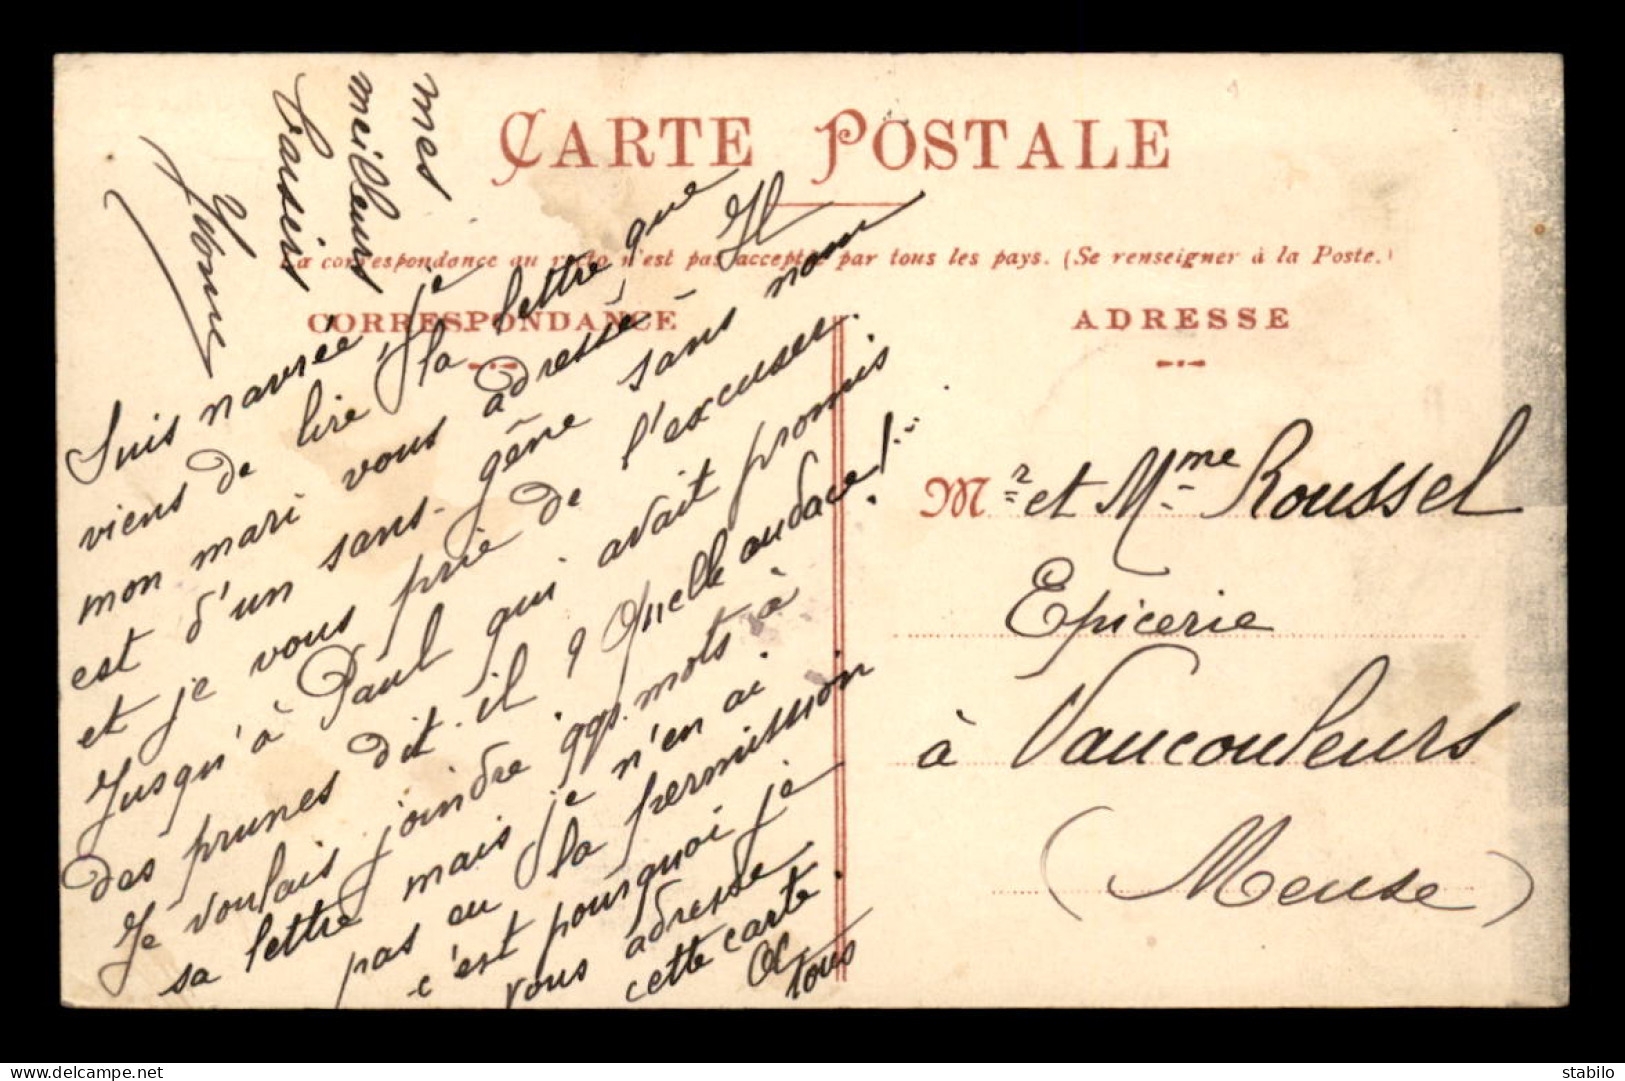 CARTE POSTALE
La correspondance au recto n'est pas acceptée par tous les pays. (Se renseigner à la Poste.)
CORRESPONDANCE
ADRESSE
Suis navrée, je
viens de lire la lettre que
mon mari vous adressé. Il
est d'un sans-gêne sans nom
et je vous prie de l'excuser.
Jusqu'à Paul qui avait promis
des prunes dit-il ? Quelle audace!...
Je voulais joindre qqs. mots à
sa lettre mais je n'en ai
pas eu la permission
c'est pourquoi je
vous adresse
cette carte.
A tous
mes
meilleurs
baisers
Yvonne
Mr et Mme Roussel
Epicerie
à Vaucouleurs
(Meuse)
stabilo